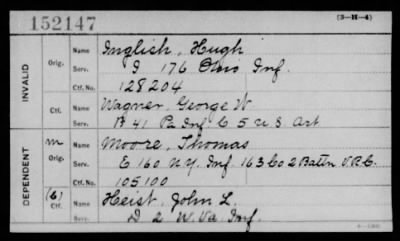 152147
(3-H-4)
INVALID
Orig.
Name Inglish, Hugh
Serv. I 176 Ohio Inf.
Ctf. No. 128204
Ctf.
Name Wagner, George W.
Serv. B 41 Pa Inf C 5 U S Art
DEPENDENT
m
Orig.
Name Moore, Thomas
Serv. E 160 N.Y. Inf 163 Co 2 Battn V.R.C.
Ctf. No. 105100
(6)
Ctf.
Name Heist, John L.
Serv. D 2 W. Va. Inf.